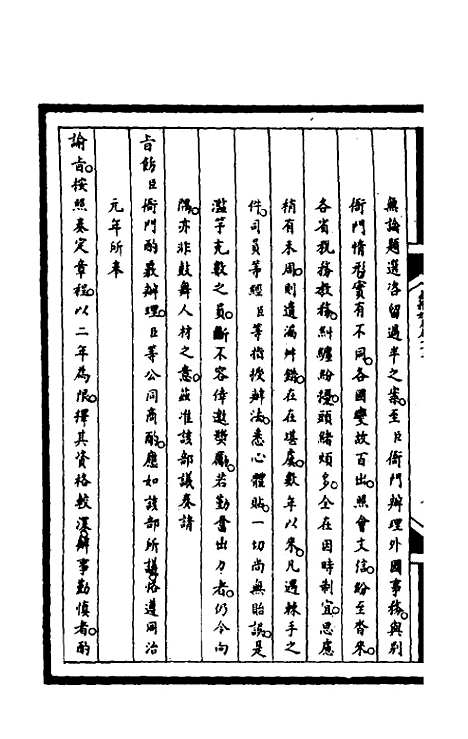 無論題選咨留過半之案至臣衙門辦理外國事務與別
衙門情形實有不同各國變故百出照會文信紛至沓來
各省税務教務糾纏紛擾頭緒煩多全在因時制宜思慮
稍有未周則遺漏舛錯在在堪虞數年以來凡遇棘手之
件司員等經臣等指授辦法悉心體貼一切尚無貽誤是
濫竽充數之員斷不容倖邀獎勵若勤奮出力者仍令向
隅亦非鼓舞人材之意茲准該部議奏請
旨飭臣衙門酌覈辦理臣等公同商酌應如該部所議恪遵同治
元年所奉
諭旨按照奏定章程以二年為限擇其資格較深辦事勤慎者酌